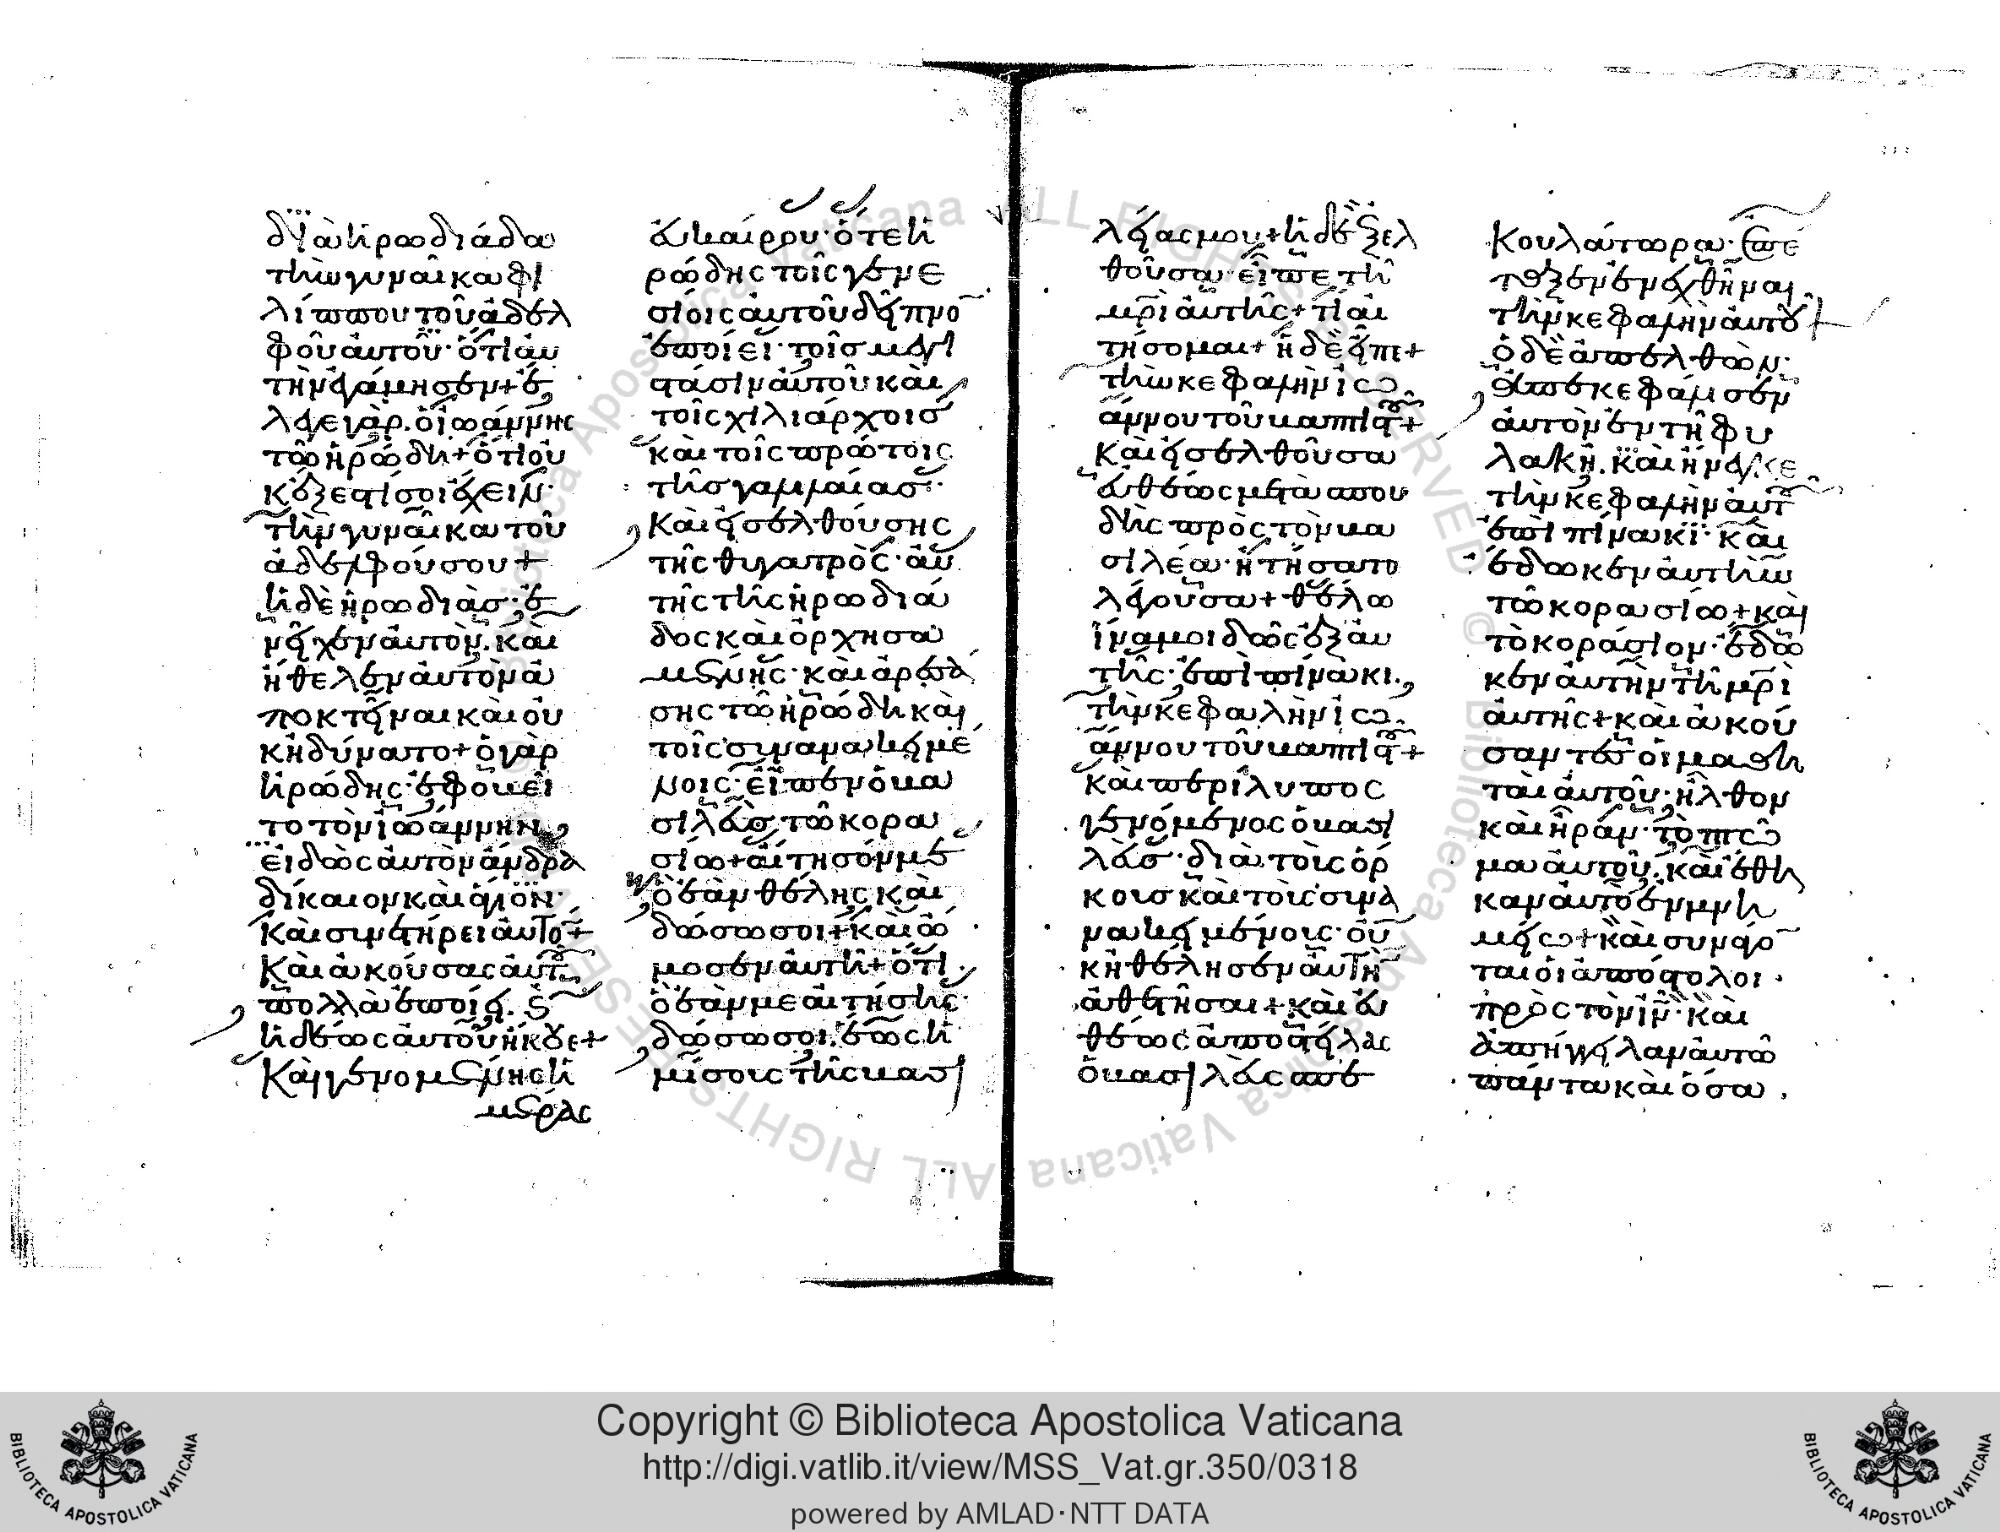 διὰ ἡρωδιάδα
τὴν γυναῖκα φι
λίππου τοῦ ἀδελ
φοῦ αὐτοῦ· ὅτι αὐ
τὴν ἐγάμησεν+ ἔ
λεγε γὰρ ὁ ἰωάννης
τῷ ἡρώδη+ ὅτι οὐ
κ ἔξεστί σοι ἔχειν·
τὴν γυναῖκα τοῦ
ἀδελφοῦ σου+
ἡ δὲ ἡρωδιὰς· ἐ
νεῖχεν αὐτὸν· καὶ
ἤθελεν αὐτὸν ἀ
ποκτεῖναι καὶ οὐ
κ ἠδύνατο+ ὁ γὰρ
ἡρώδης· ἐφοβεῖ
το τὸν ἰωάννην,
εἰδὼς αὐτὸν ἄνδρα
δίκαιον καὶ ἅγιον·
καὶ συνετήρει αὐτὸ+
καὶ ἀκούσας αὐτ
πολλὰ ἐποίει.
ἡδέως αὐτοῦ ἤκουε+
καὶ γενομένης ἡ
μέρας
εὐκαίρου· ὅτε ἡ
ρώδης τοῖς γενε
σίοις αὐτοῦ δεῖπνο
ἐποίει· τοῖς μεγι
στάσιν αὐτοῦ καὶ
τοῖς χιλιάρχοις
καὶ τοῖς πρώτοις
τῆς γαλιλαίας·
καὶ εἰσελθούσης
τῆς θυγατρὸς· αὐ
τῆς τῆς ἡρωδιά
δος καὶ ὀρχησα
μένης· καὶ ἀρεσά
σης τῷ ἡρώδη καὶ
τοῖς συνανακειμέ
νοις· εἶπεν ὁ βα
σιλεὺς τῷ κορα
σίω+ αἴτησόν με
ὃ ἐὰν θέλης καὶ
δώσω σοι+ καὶ ὤ
μοσεν αὐτῆ+ ὅτι
ὃ ἐάν με αἰτήσης·
δώσω σοι. ἕως ἡ
μίσους τῆς βασι
λείας μου+ ἡ δὲ ἐξελ
θοῦσα· εἶπε τῆ
μρὶ αὐτῆς+ τί αἰ
τήσομαι+ ἡ δὲ εἶπε+
τὴν κεφαλὴν ἰω
άννου τοῦ βαπτιστ+
καὶ εἰσελθοῦσα
εὐθέως μετὰ σπου
δῆς πρὸς τὸν βα
σιλέα· ἠτήσατο
λέγουσα+ θέλω
ἵνα μοι δῶς ἐξ αὐ
τῆς· ἐπὶ πίνακι.
τὴν κεφαλὴν ἰω
άννου τοῦ βαπτιστ+
καὶ περίλυπος
γενόμενος ὁ βασι
λεὺς· διὰ τοὺς ὅρ
κους καὶ τοὺς συνα
νακειμένους· οὐ
κ ἠθέλησεν αὐτὴ
ἀθετῆσαι+ καὶ εὐ
θέως ἀποστείλας
ὁ βασιλεὺς σπε
κουλάτωρα· ἐπέ
ταξεν ἐνεχθῆναι
τὴν κεφαλὴν αὐτοῦ+
ὁ δὲ ἀπελθὼν·
ἀπεκεφάλισεν
αὐτὸν ἐν τῆ φυ
λακῆ. καὶ ἤνεγκε
τὴν κεφαλὴν αὐτ
ἐπὶ πίνακι· καὶ
ἔδωκεν αὐτὴν
τῷ κορασίω+ καὶ
τὸ κοράσιον· ἔδω
κεν αὐτὴν τῆ μρὶ
αὐτῆς+ καὶ ἀκού
σαντες οἱ μαθη
ταὶ αὐτοῦ· ἦλθον
καὶ ἦραν· τὸ πτῶ
μα αὐτοῦ. καὶ ἔθη
καν αὐτὸ ἐν μνη
μείω+ καὶ συνάγο
ται οἱ ἀπόστολοι
πρὸς τὸν ιν· καὶ
ἀπήγγειλαν αὐτῶ
πάντα καὶ ὅσα
Copyright © Biblioteca Apostolica Vaticana
http://digi.vatlib.it/view/MSS_Vat.gr.350/0318
powered by AMLAD·NTT DATA
BIBLIOTECA APOSTOLICA VATICANA
BIBLIOTECA APOSTOLICA VATICANA